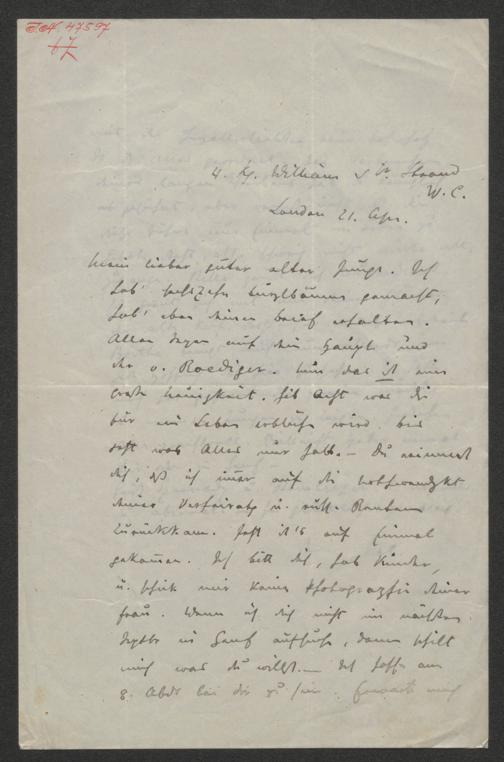 47597
4. Kg. William Str. Strand
W. C.
London 21. Apr.
Mein lieber guter alter Junge. Ich
hab' sechszehn Purzlbäume gemacht,
hab' eben deinen Brief erhalten.
Allen Segen auf dein Haupt und
der v. Roediger. Nun das ist eine
große Neuigkeit. Gib Acht was dir
für ein Leben erblühn wird.
was Alles nur halb. — Du erinnerst
dich, dß ich imer auf die Nothwendigkt
deiner Verheirathg u.
zurückkam. Jetzt ist's auf Einmal
gekomen. Ich bitt dich, hab Kinder,
u. schick mir keine Photographie deiner
Frau. Wenn ich dich nicht im nächsten
Septbr in Genf aufsuche, dann schilt
mich was du willst. — Ich hoffe am
8. Abds bei dir zu sein. Erwarte mich